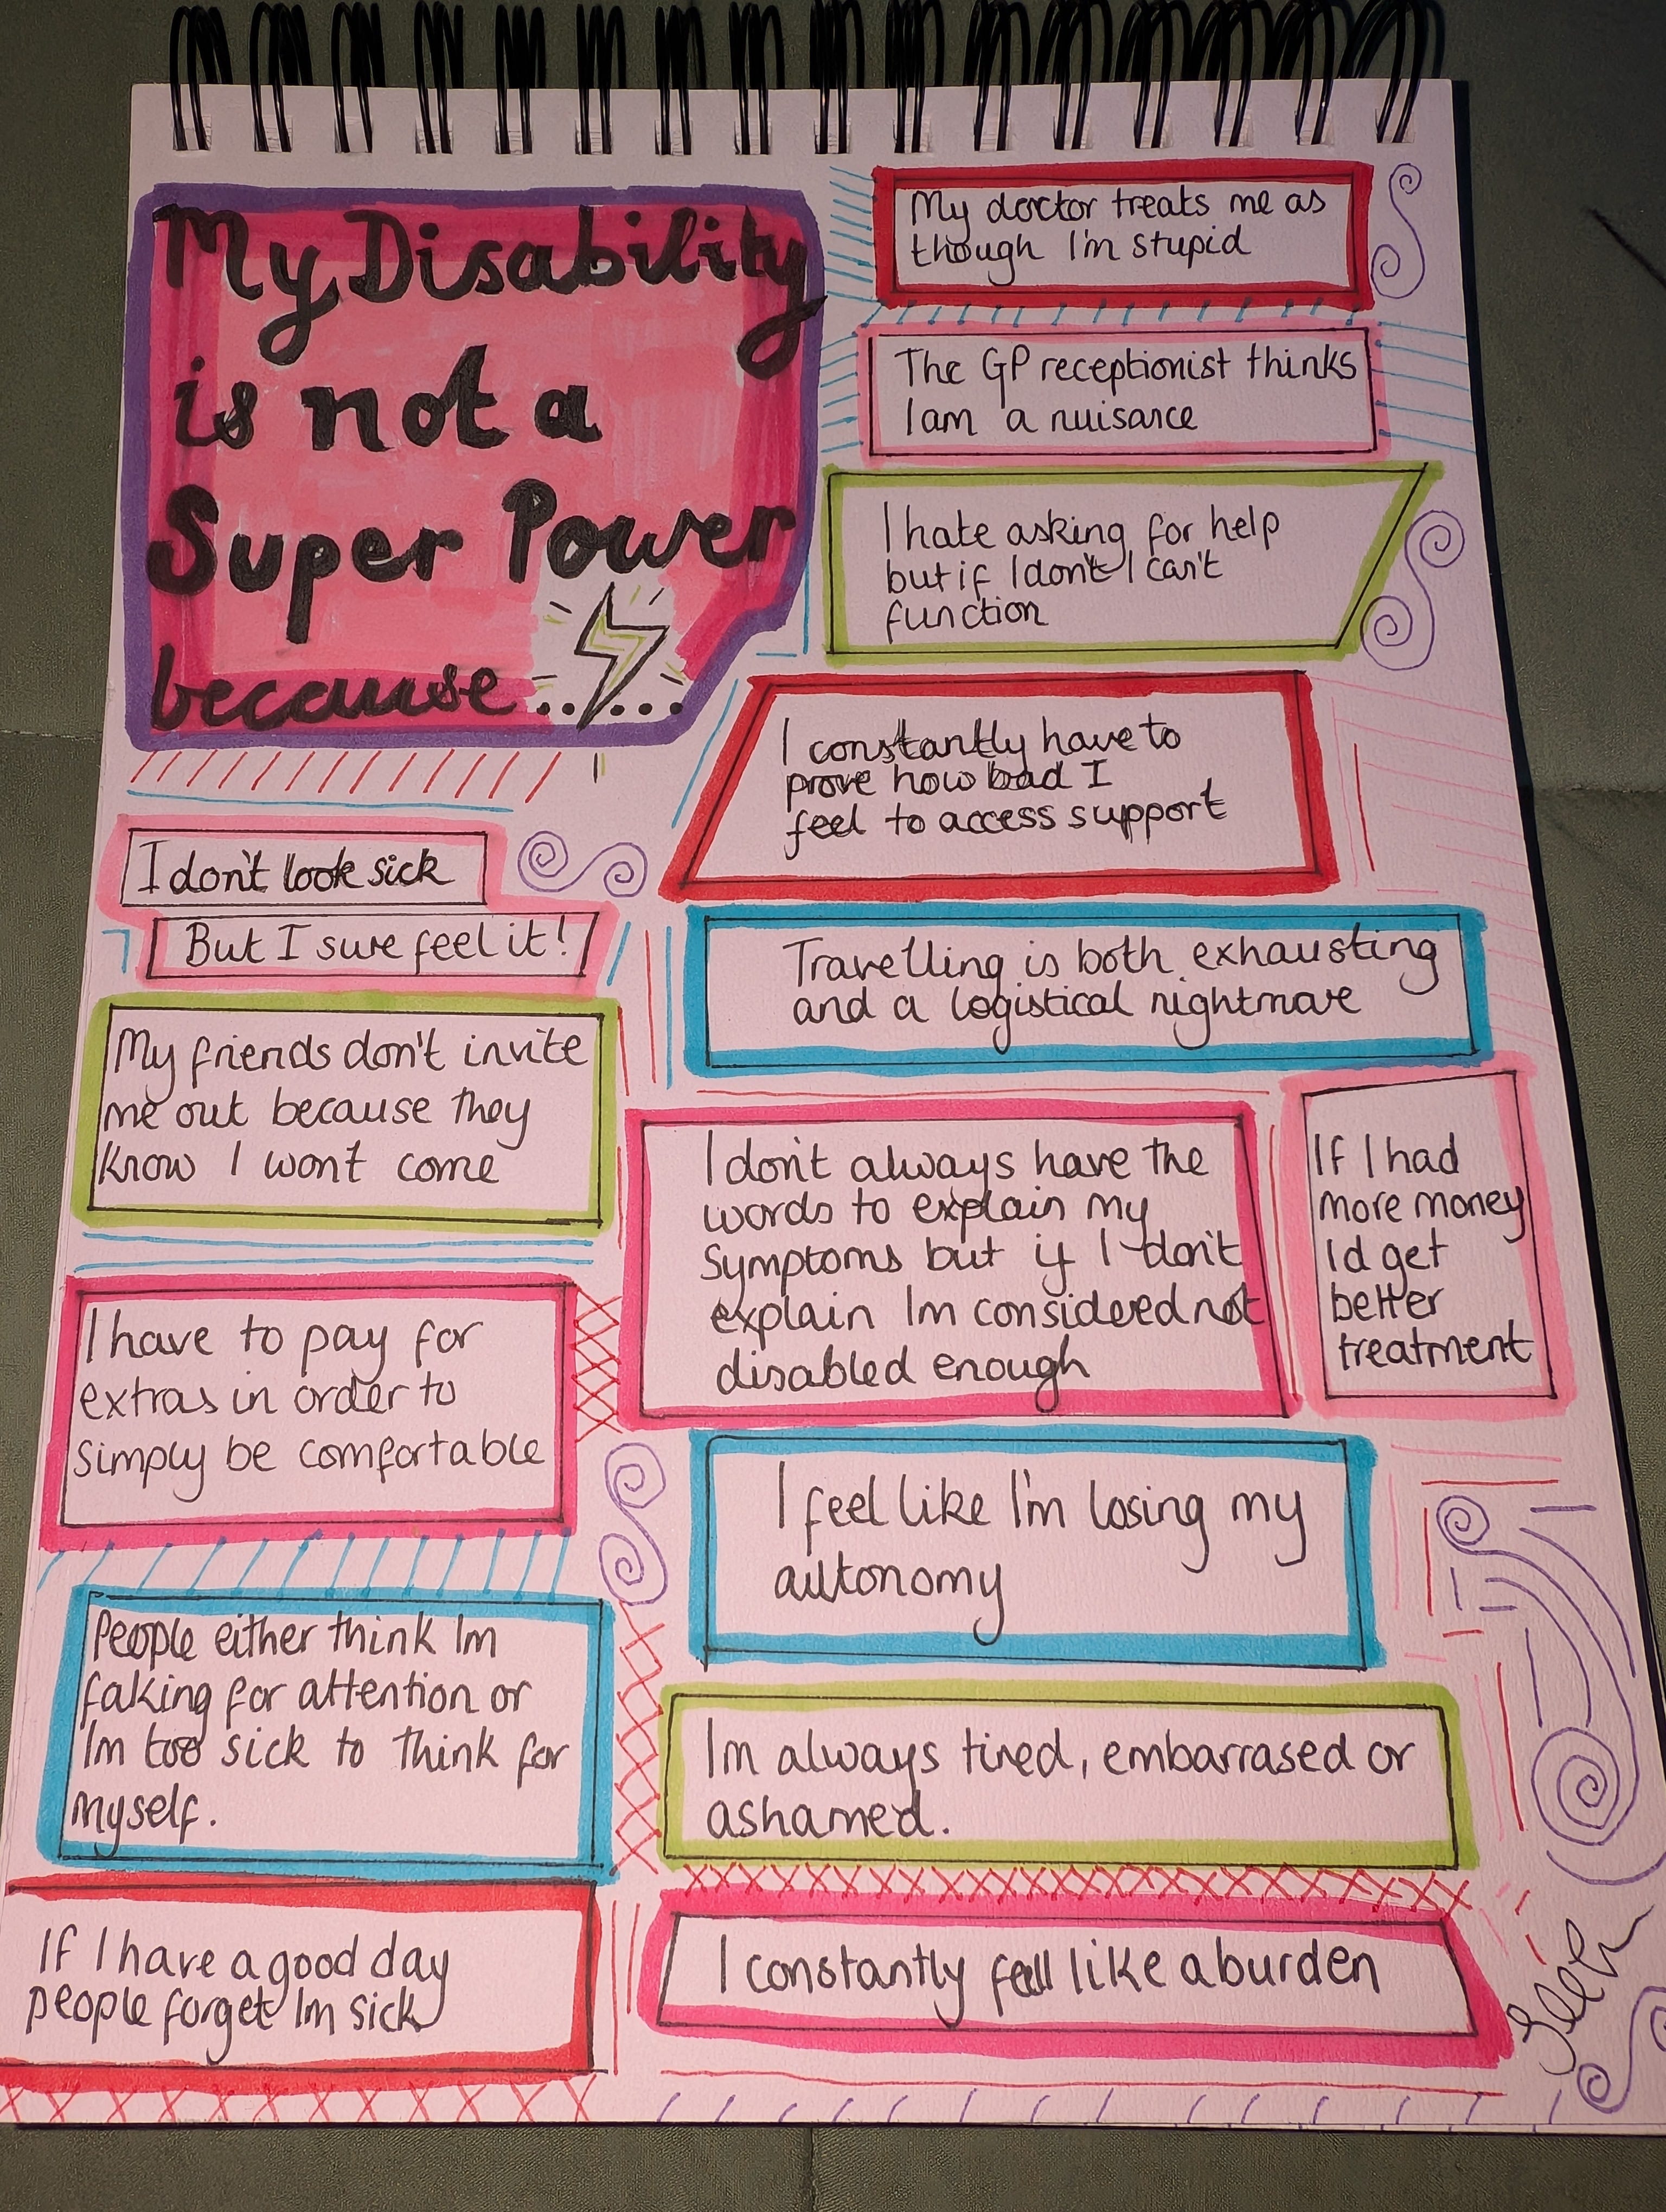 My Disability
is not a
Super Power
because......
I don't look sick
But I sure feel it!
My friends don't invite
me out because they
know I won't come
I have to pay for
extras in order to
simply be comfortable
People either think Im
faking for attention or
Im too sick to think for
myself.
If I have a good day
people forget Im sick
My doctor treats me as
though I'm stupid
The GP receptionist thinks
I am a nuisance
I hate asking for help
but if I don't I can't
function
I constantly have to
prove how bad I
feel to access support
Travelling is both exhausting
and a logistical nightmare
I don't always have the
words to explain my
symptoms but if I don't
explain Im considered not
disabled enough
If I had
more money
Id get
better
treatment
I feel like I'm losing my
autonomy
Im always tired, embarrased or
ashamed.
I constantly feel like a burden